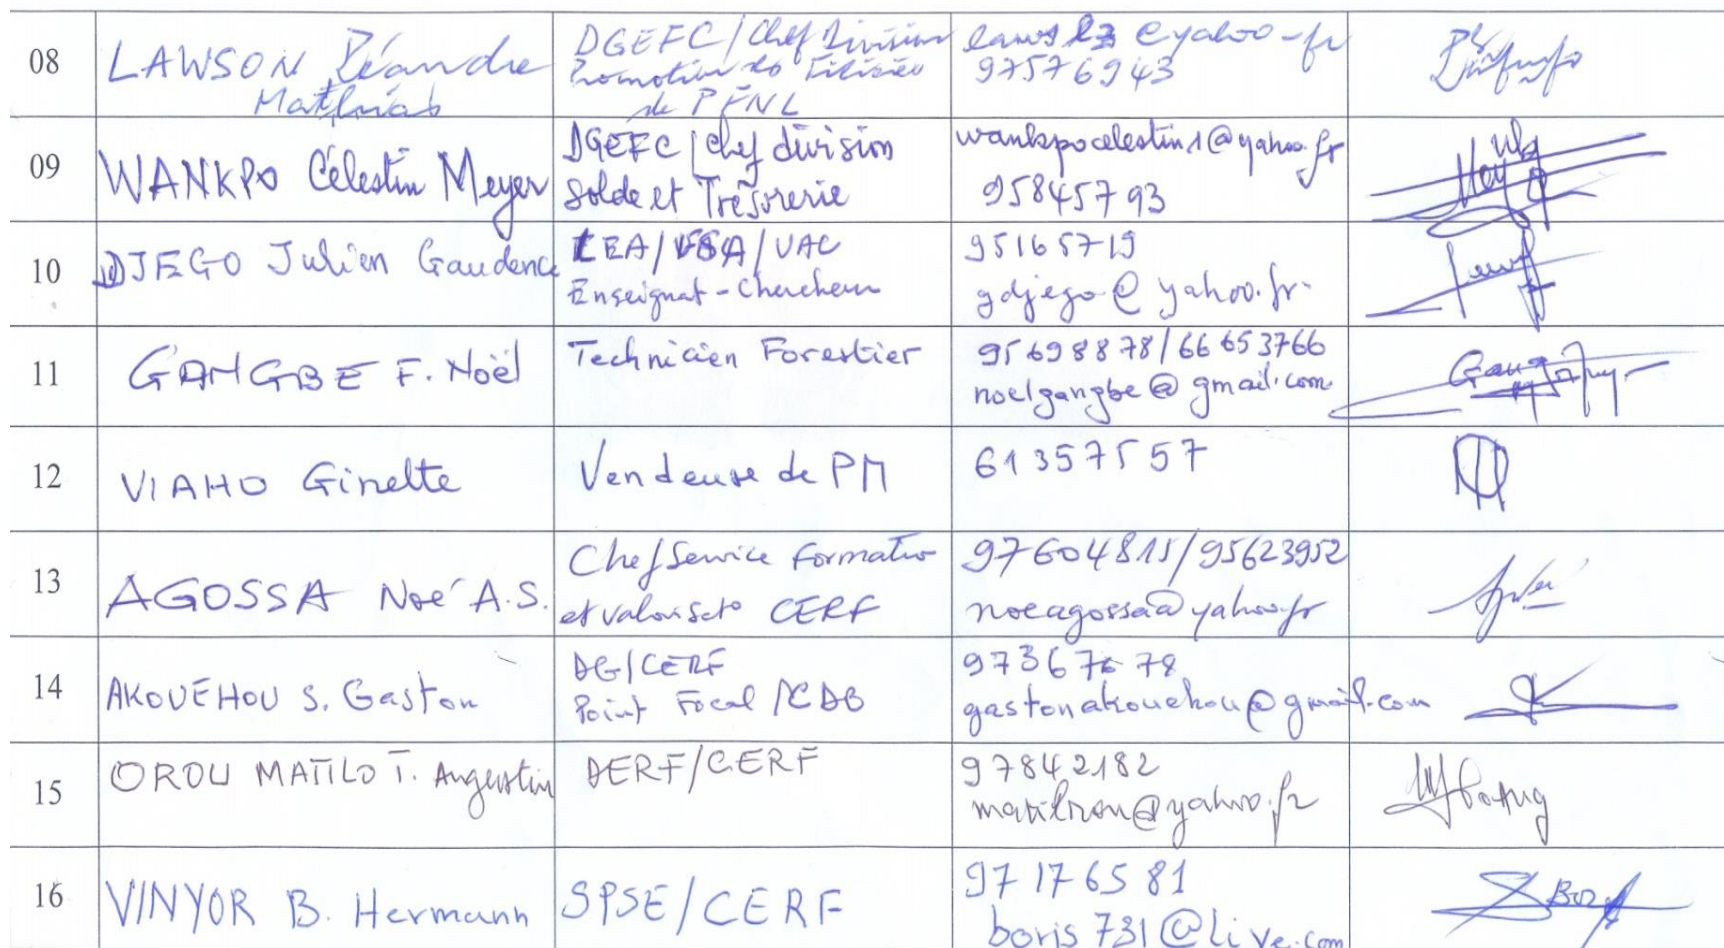 08
LAWSON Léandre
Mathias
DGEFC/Chef Division
Promotion des Filières
de PFNL
97576943
09
WANKPO Célestin Meyer
DGEFC/Chef division
Solde et Trésorerie
wankpocelestin1@yahoo.fr
95845793
10
DJEGO Julien Gaudence
LEA/FSA/UAC
Enseignat-Chercheur
95165719
gdjego@yahoo.fr
11
GANGBE F. Noël
Technicien Forestier
95698878/66653766
noelgangbe@gmail.com
12
VIAHO Ginette
Vendeuse de PM
61357557
13
AGOSSA Noé A.S.
Chef Service Formatio
et valorisat° CERF
97604815/95623952
noeagossa@yahoo.fr
14
AKOUEHOU S. Gaston
DG/CERF
Point Focal/CDB
gastonakouehou@gmail.com
15
OROU MATILO T. Augustin
DERF/CERF
97842182
@yahoo.fr
16
VINYOR B. Hermann
SPSE/CERF
97176581
boris731@live.com